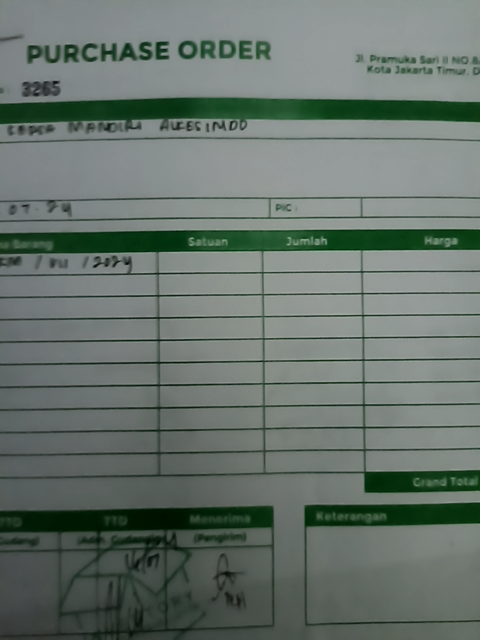 PURCHASE ORDER
Jl. Pramuka Sari II NO.8
Kota Jakarta Timur, D
3265
MANDIRI ALKESINDO
07.24
PIC:
Barang Satuan Jumlah Harga
/ VII / 2024
Grand Total
TTD TTD Menerima Keterangan
Gudang) (Adm. Gudang) (Pengirim)
16/07